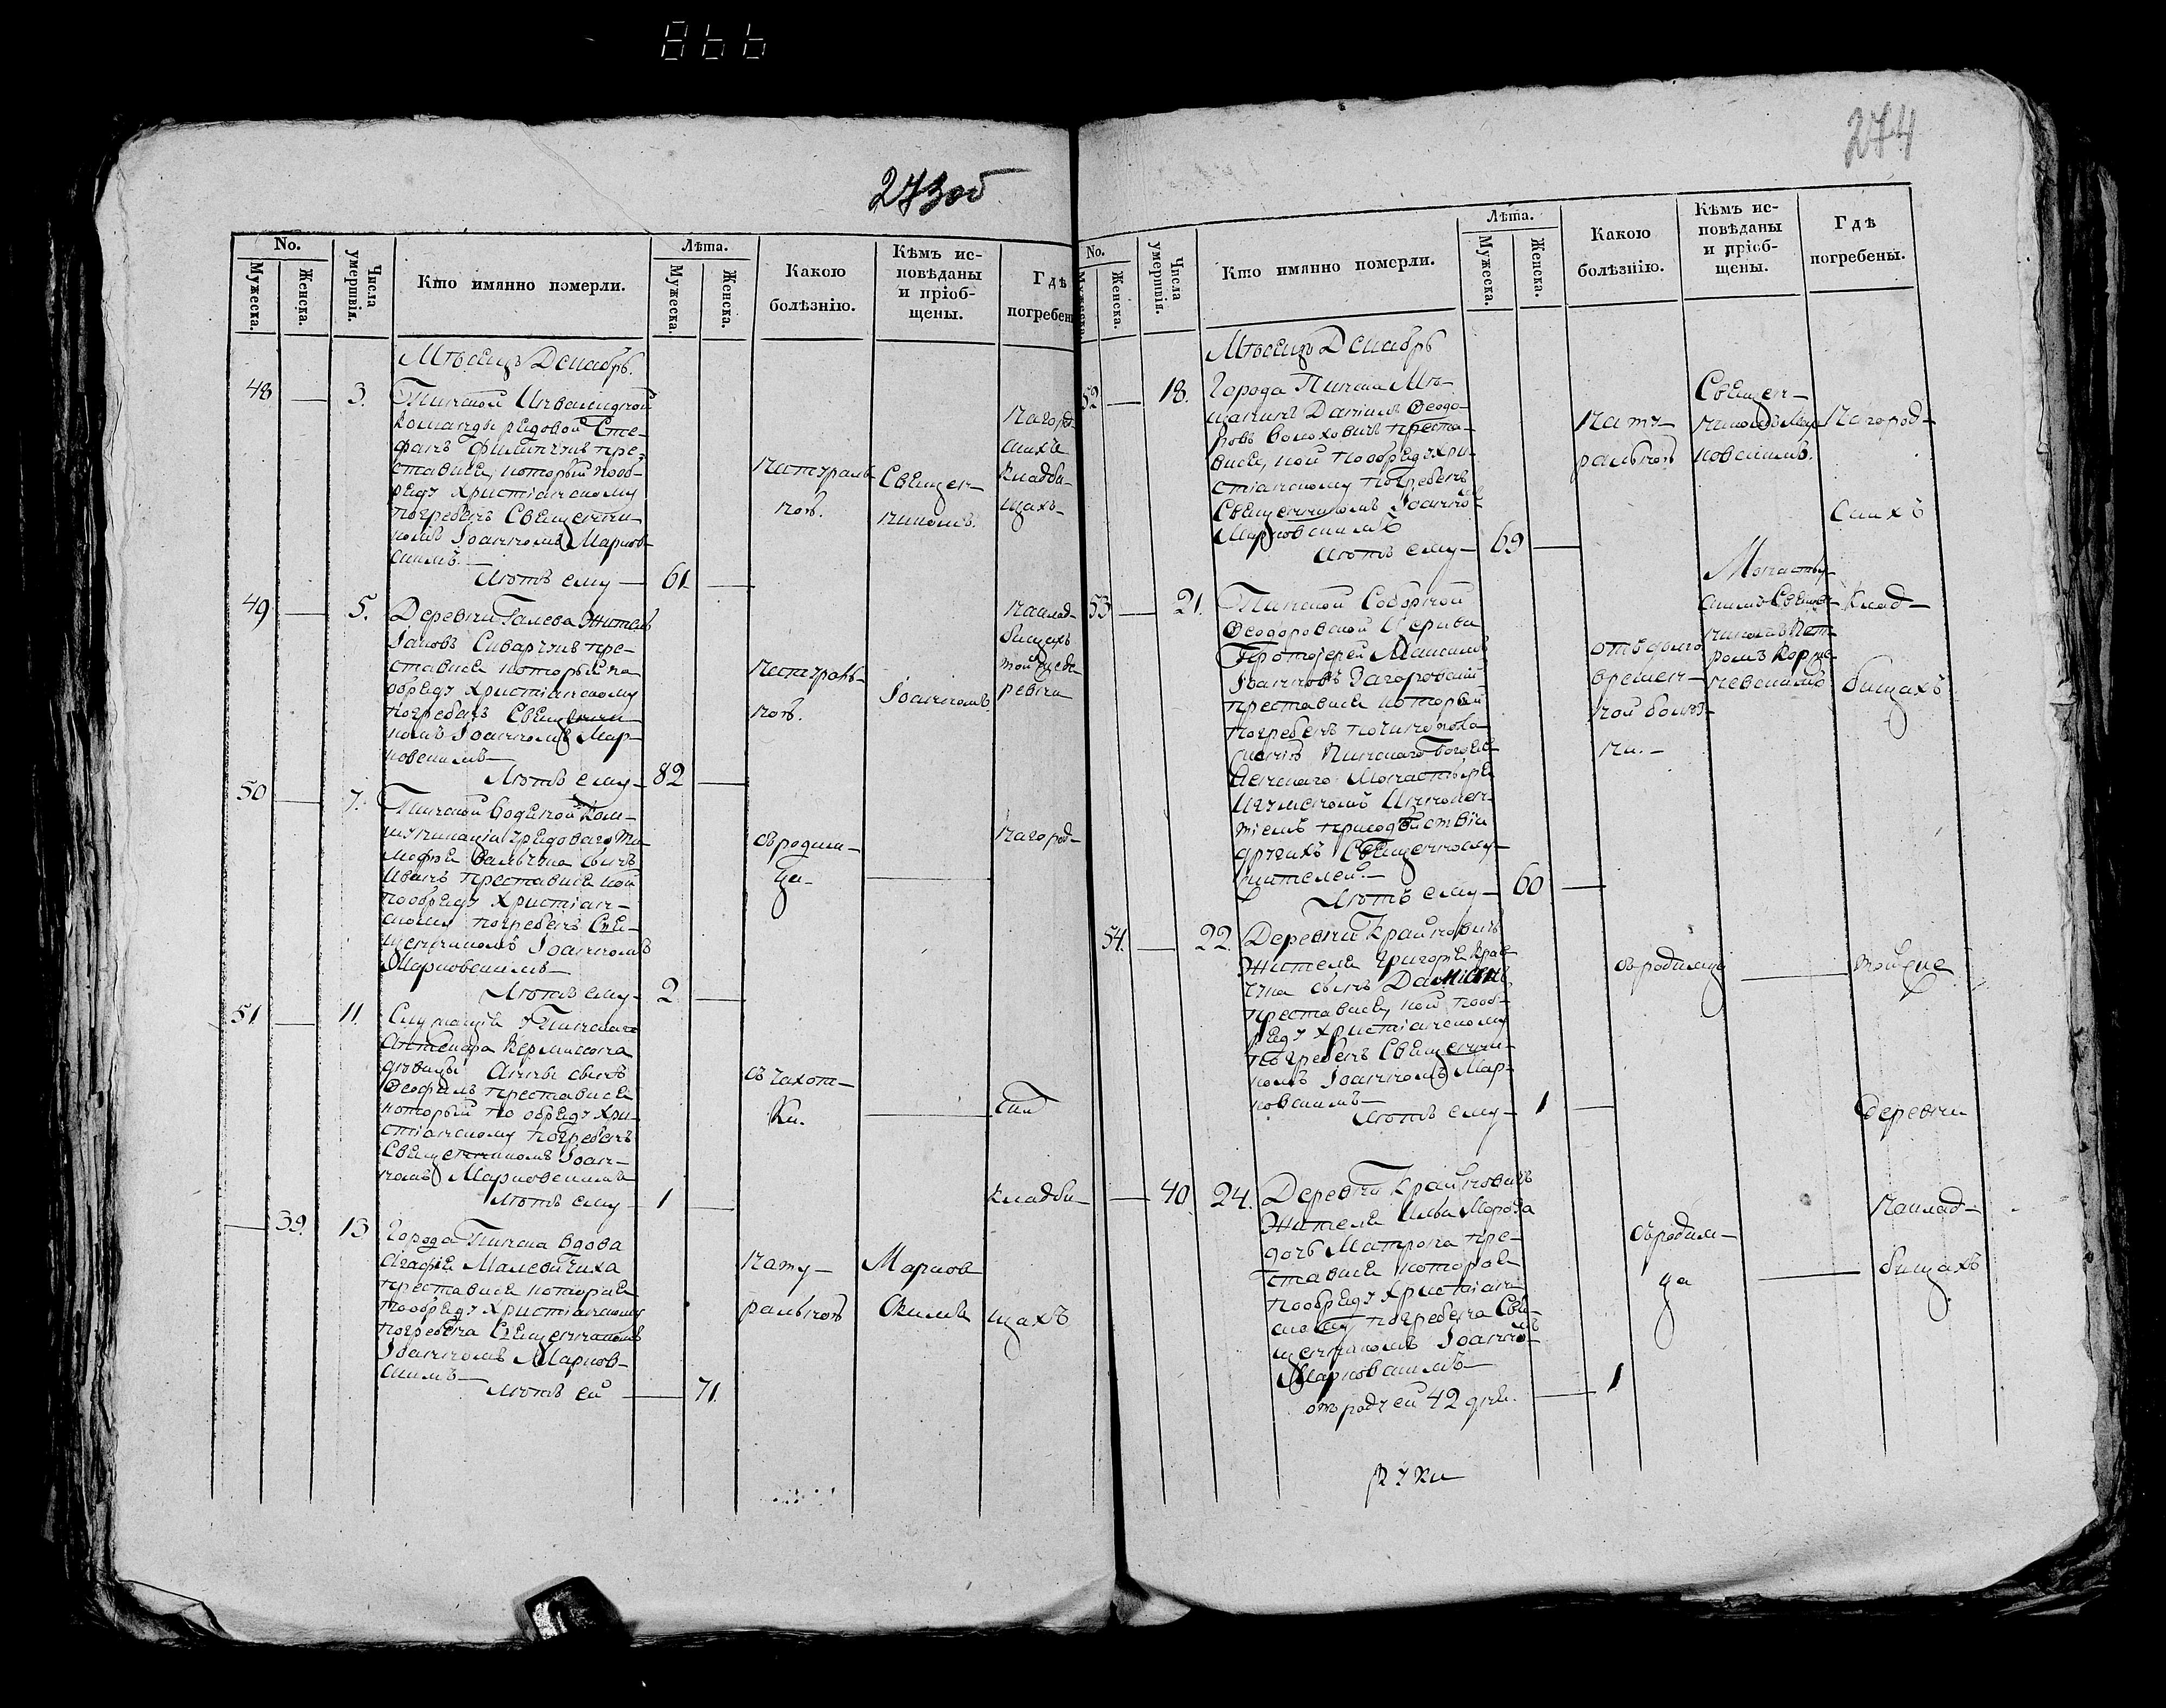 866
273об
No.
Мужеска.
Женска.
Числа умершiя.
Кто имянно померли.
Лѣта.
Мужеска.
Женска.
Какою
болѣзнiю.
Кѣмъ ис-
повѣданы
и прiоб-
щены.
Гдѣ
погребен
Мѣсецъ Декабрь.
48 — 3. Пинской Инвалидной
команды редовой Сте-
фанъ Филипчукъ пре-
ставися, который пооб-
реду Христiанскому
погребенъ Священни-
комъ Iоанномъ Марков-
скимъ.—
Лѣтъ ему — 61 —
натураль-
ною.
Священ-
никомъ.
Нагород-
скихъ
кладби-
щахъ
49 — 5. Деревни Галева Житель
Iаковъ Сиварчукъ пре-
ставися который по
обреду христiанскому
погребенъ Священни-
комъ Iоанномъ Мар-
ковскимъ—
Лѣтъ ему — 82 —
натураль-
ною.
Iоанномъ
наклад-
бищахъ
той же де-
ревни
50 — 7. Пинской Водяной Ком-
муникацiи редоваго Ти-
мофея сынъ
Иванъ преставися кой
пообреду Христiан-
скому погребенъ Свя-
щенникомъ Iоанномъ
Марковскимъ—
Лѣтъ ему — 2 —
съ родим-
ца —
нагород-
51 — 11. Служащiй у Пинскаго
дѣвицы Анны сынъ
Феофилъ преставися
который по обреду Хри-
стiанскому погребенъ
Священникомъ Iоан-
номъ Марковскимъ
Лѣтъ ему — 1 —
съ чахот-
ки. —
ских
кладби-
— 39. 13 Города Пинска вдова
Агафiя Малевичиха
преставися которая
пообреду Христiанскому
погребена Священникомъ
Iоанномъ Марков-
скимъ—
Лѣтъ ей — 71.
нату-
ральною
Марков
скимъ
щахъ
274
No.
Мужеска.
Женска.
Числа умершiя.
Кто имянно померли.
Лѣта.
Мужеска.
Женска.
Какою
болѣзнiю.
Кѣмъ ис-
повѣданы
и прiоб-
щены.
Гдѣ
погребены.
Мѣсецъ Декабрь
52 — 18. Города Пинска Мѣ-
щанинъ Данiилъ Феодо-
ровъ Волоховичъ преста-
вися, кой пообреду Хри-
стiанскому погребенъ
Священникомъ Iоанно-
Марковскимъ
Лѣтъ ему — 69 —
нату-
ральною
Священ-
никомъ Мар-
ковскимъ.
Нагород-
скихъ
53 — 21. Пинской Соборной
Феодоровской Церкви
Протоiерей Максимъ
Iоанновъ Загоровскiй
преставися который
погребенъ
Пинскаго Богояв-
ленскаго Монастыря
Игуменомъ Иннокен-
тiемъ
другихъ Священнослу-
жителей.—
Лѣтъ ему — 60 —
отъ долго
времен-
ной болѣз-
ни.—
Монастыр-
скимъ Священ-
никомъ Пет-
ромъ
Клад-
бищахъ
54. — 22. Деревни Крайновичъ
Жителя Григорiя Крав-
чука сынъ Дамианъ
преставися, кой пооб-
реду христiанскому
погребенъ Священни-
комъ Iоанномъ Мар-
ковскимъ—
Лѣтъ ему — 1 —
съ родимца
—
той же
деревни
— 40. 24. Деревни Крайновичъ
Жителя Ильи Мороза
дочь Матрона пре-
ставися которая
пообреду христiан-
скому погребена Свя-
щенникомъ Iоанномъ
Марковскимъ—
отъ роду ей 42 дня. — 1
съ родим-
ца —
наклад-
бищахъ